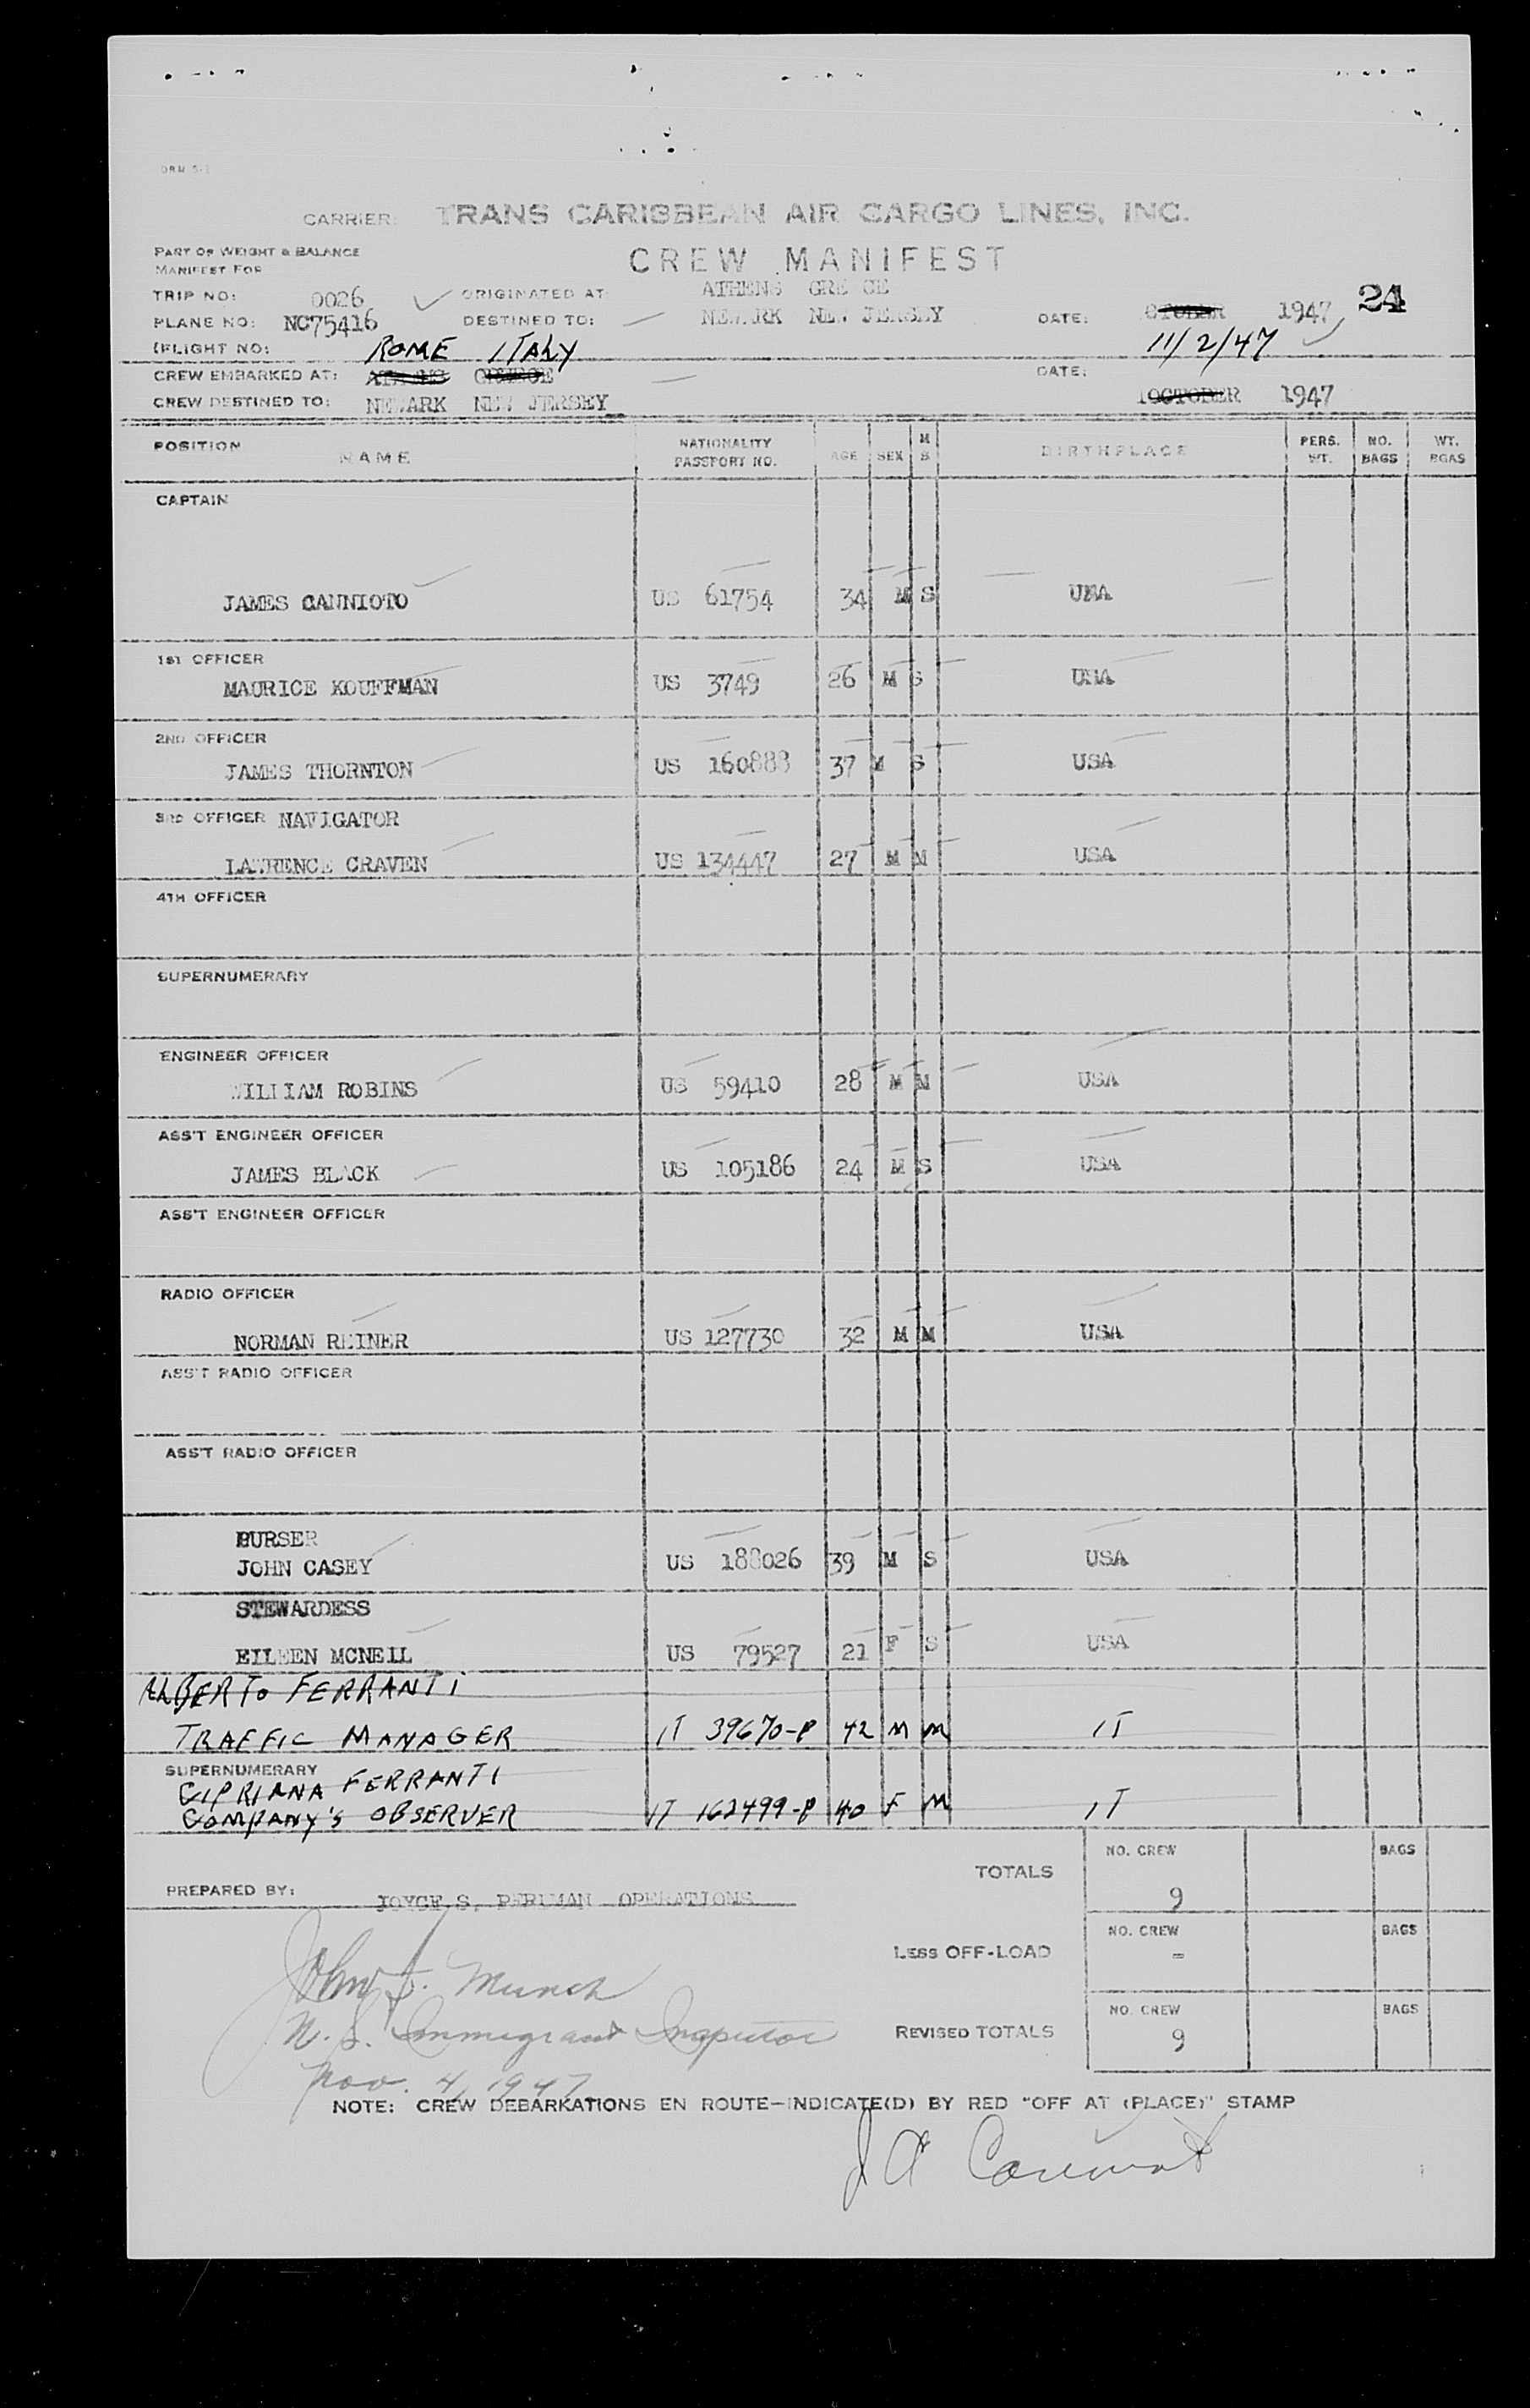 CARRIER: TRANS CARIBBEAN AIR CARGO LINES, INC.
PART OF WEIGHT & BALANCE
MANIFEST FOR
CREW MANIFEST
TRIP NO: 0026 ORIGINATED AT: ATHENS GRE CE
PLANE NO: NC75416 DESTINED TO: NEWARK NEW JERSEY DATE: 1947 24
(FLIGHT NO: ROME ITALY 11/2/47
CREW EMBARKED AT: ATHENS GREECE DATE:
CREW DESTINED TO: NEWARK NEW JERSEY OCTOBER 1947
POSITION NAME NATIONALITY PASSPORT NO. AGE SEX M S BIRTHPLACE PERS. WT. NO. BAGS WT. BGAS
CAPTAIN
JAMES CANNIOTO US 61754 34 M S USA
1ST OFFICER
MAURICE KOUFFMAN US 3749 26 M S USA
2ND OFFICER
JAMES THORNTON US 160888 37 M S USA
3RD OFFICER NAVIGATOR
LAWRENCE CRAVEN US 134447 27 M M USA
4TH OFFICER
SUPERNUMERARY
ENGINEER OFFICER
WILLIAM ROBINS US 59410 28 M M USA
ASS'T ENGINEER OFFICER
JAMES BLACK US 105186 24 M S USA
ASS'T ENGINEER OFFICER
RADIO OFFICER
NORMAN REINER US 127730 32 M M USA
ASS'T RADIO OFFICER
ASS'T RADIO OFFICER
PURSER
JOHN CASEY US 188026 39 M S USA
STEWARDESS
EILEEN MCNEIL US 79527 21 F S USA
ALBERTO FERRANTI
TRAFFIC MANAGER IT 39670-P 42 M M IT
SUPERNUMERARY
CIPRIANA FERRANTI
COMPANY'S OBSERVER IT 162499-P 40 F M IT
TOTALS NO. CREW 9 BAGS
PREPARED BY: JOYCE S. PERLMAN OPERATIONS
LESS OFF-LOAD NO. CREW - BAGS
John J. Munch
U.S. Immigrant Inspector
REVISED TOTALS NO. CREW 9 BAGS
Nov. 4, 1947
NOTE: CREW DEBARKATIONS EN ROUTE—INDICATE(D) BY RED "OFF AT (PLACE)" STAMP
J A